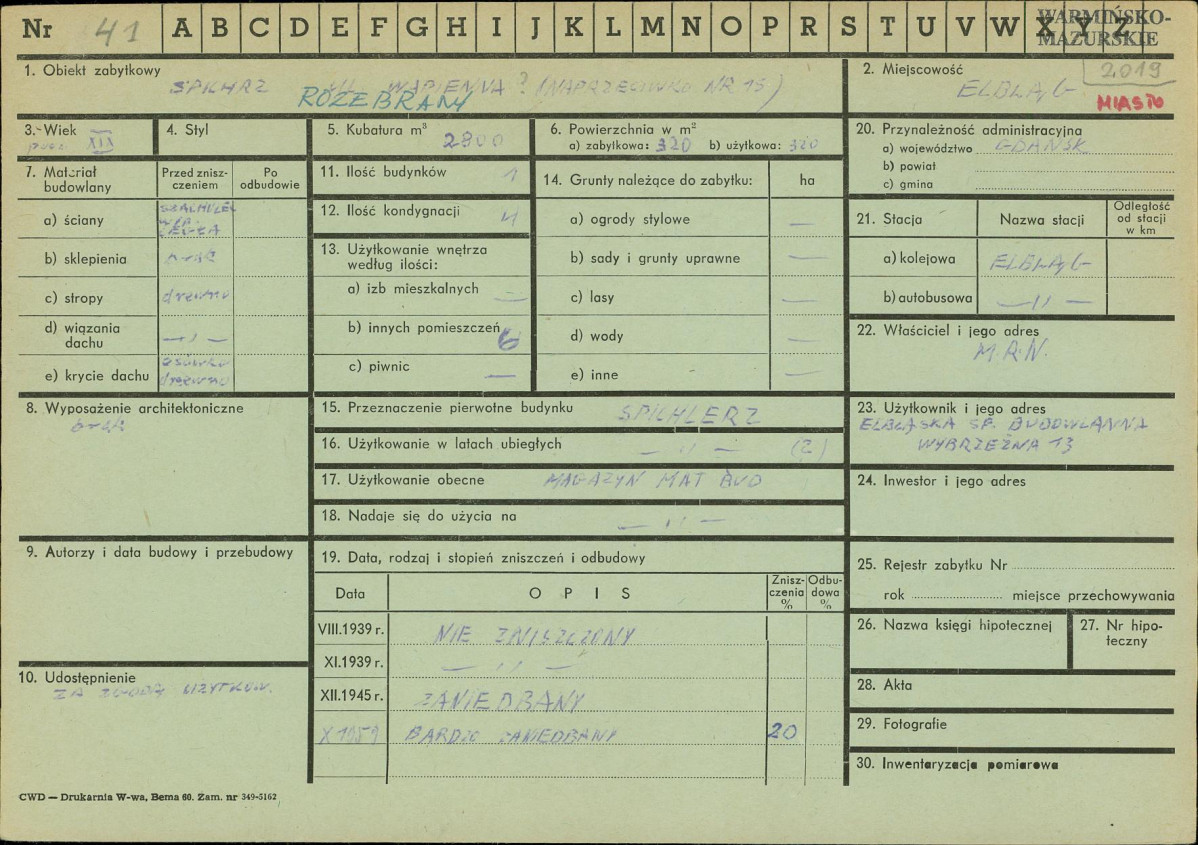 Nr 41 A B C D E F G H I J K L M N O P R S T U V W X Y Z
WARMIŃSKO-
MAZURSKIE
2019
1. Obiekt zabytkowy
SPICHRZ UL. WAPIENNA? (NAPRZECIWKO NR 15)
ROZEBRANY
2. Miejscowość
ELBLĄG
MIASTO
3. Wiek
XIX
4. Styl
5. Kubatura m³
2800
6. Powierzchnia w m²
a) zabytkowa: 320 b) użytkowa: 320
7. Materiał
budowlany
Przed znisz-
czeniem
Po
odbudowie
a) ściany
CEGŁA
b) sklepienia
brak
c) stropy
drewno
d) wiązania
dachu
— ,, —
e) krycie dachu
drewno
8. Wyposażenie architektoniczne
brak
9. Autorzy i data budowy i przebudowy
10. Udostępnienie
ZA ZGODĄ UŻYTKOW.
11. Ilość budynków
1
12. Ilość kondygnacji
4
13. Użytkowanie wnętrza
według ilości:
a) izb mieszkalnych —
b) innych pomieszczeń 6
c) piwnic —
14. Grunty należące do zabytku: ha
a) ogrody stylowe —
b) sady i grunty uprawne —
c) lasy —
d) wody —
e) inne —
15. Przeznaczenie pierwotne budynku SPICHLERZ
16. Użytkowanie w latach ubiegłych — ,, — (2)
17. Użytkowanie obecne MAGAZYN MAT BUD
18. Nadaje się do użycia na — ,, —
19. Data, rodzaj i stopień zniszczeń i odbudowy
Data
OPIS
Znisz-
czenia
%
Odbu-
dowa
%
VIII.1939 r. NIE ZNISZCZONY
XI.1939 r. — ,, —
XII.1945 r. ZANIEDBANY
X 1959 BARDZO ZANIEDBANY 20
20. Przynależność administracyjna
a) województwo GDAŃSK
b) powiat
c) gmina
21. Stacja
Nazwa stacji
Odległość
od stacji
w km
a) kolejowa ELBLĄG
b) autobusowa — ,, —
22. Właściciel i jego adres
M.R.N.
23. Użytkownik i jego adres
ELBLĄSKA SP. BUDOWLANNA
WYBRZEŻNA 13
24. Inwestor i jego adres
25. Rejestr zabytku Nr
rok miejsce przechowywania
26. Nazwa księgi hipotecznej
27. Nr hipo-
teczny
28. Akta
29. Fotografie
30. Inwentaryzacja pomiarowa
CWD — Drukarnia W-wa, Bema 60. Zam. nr 349-5162